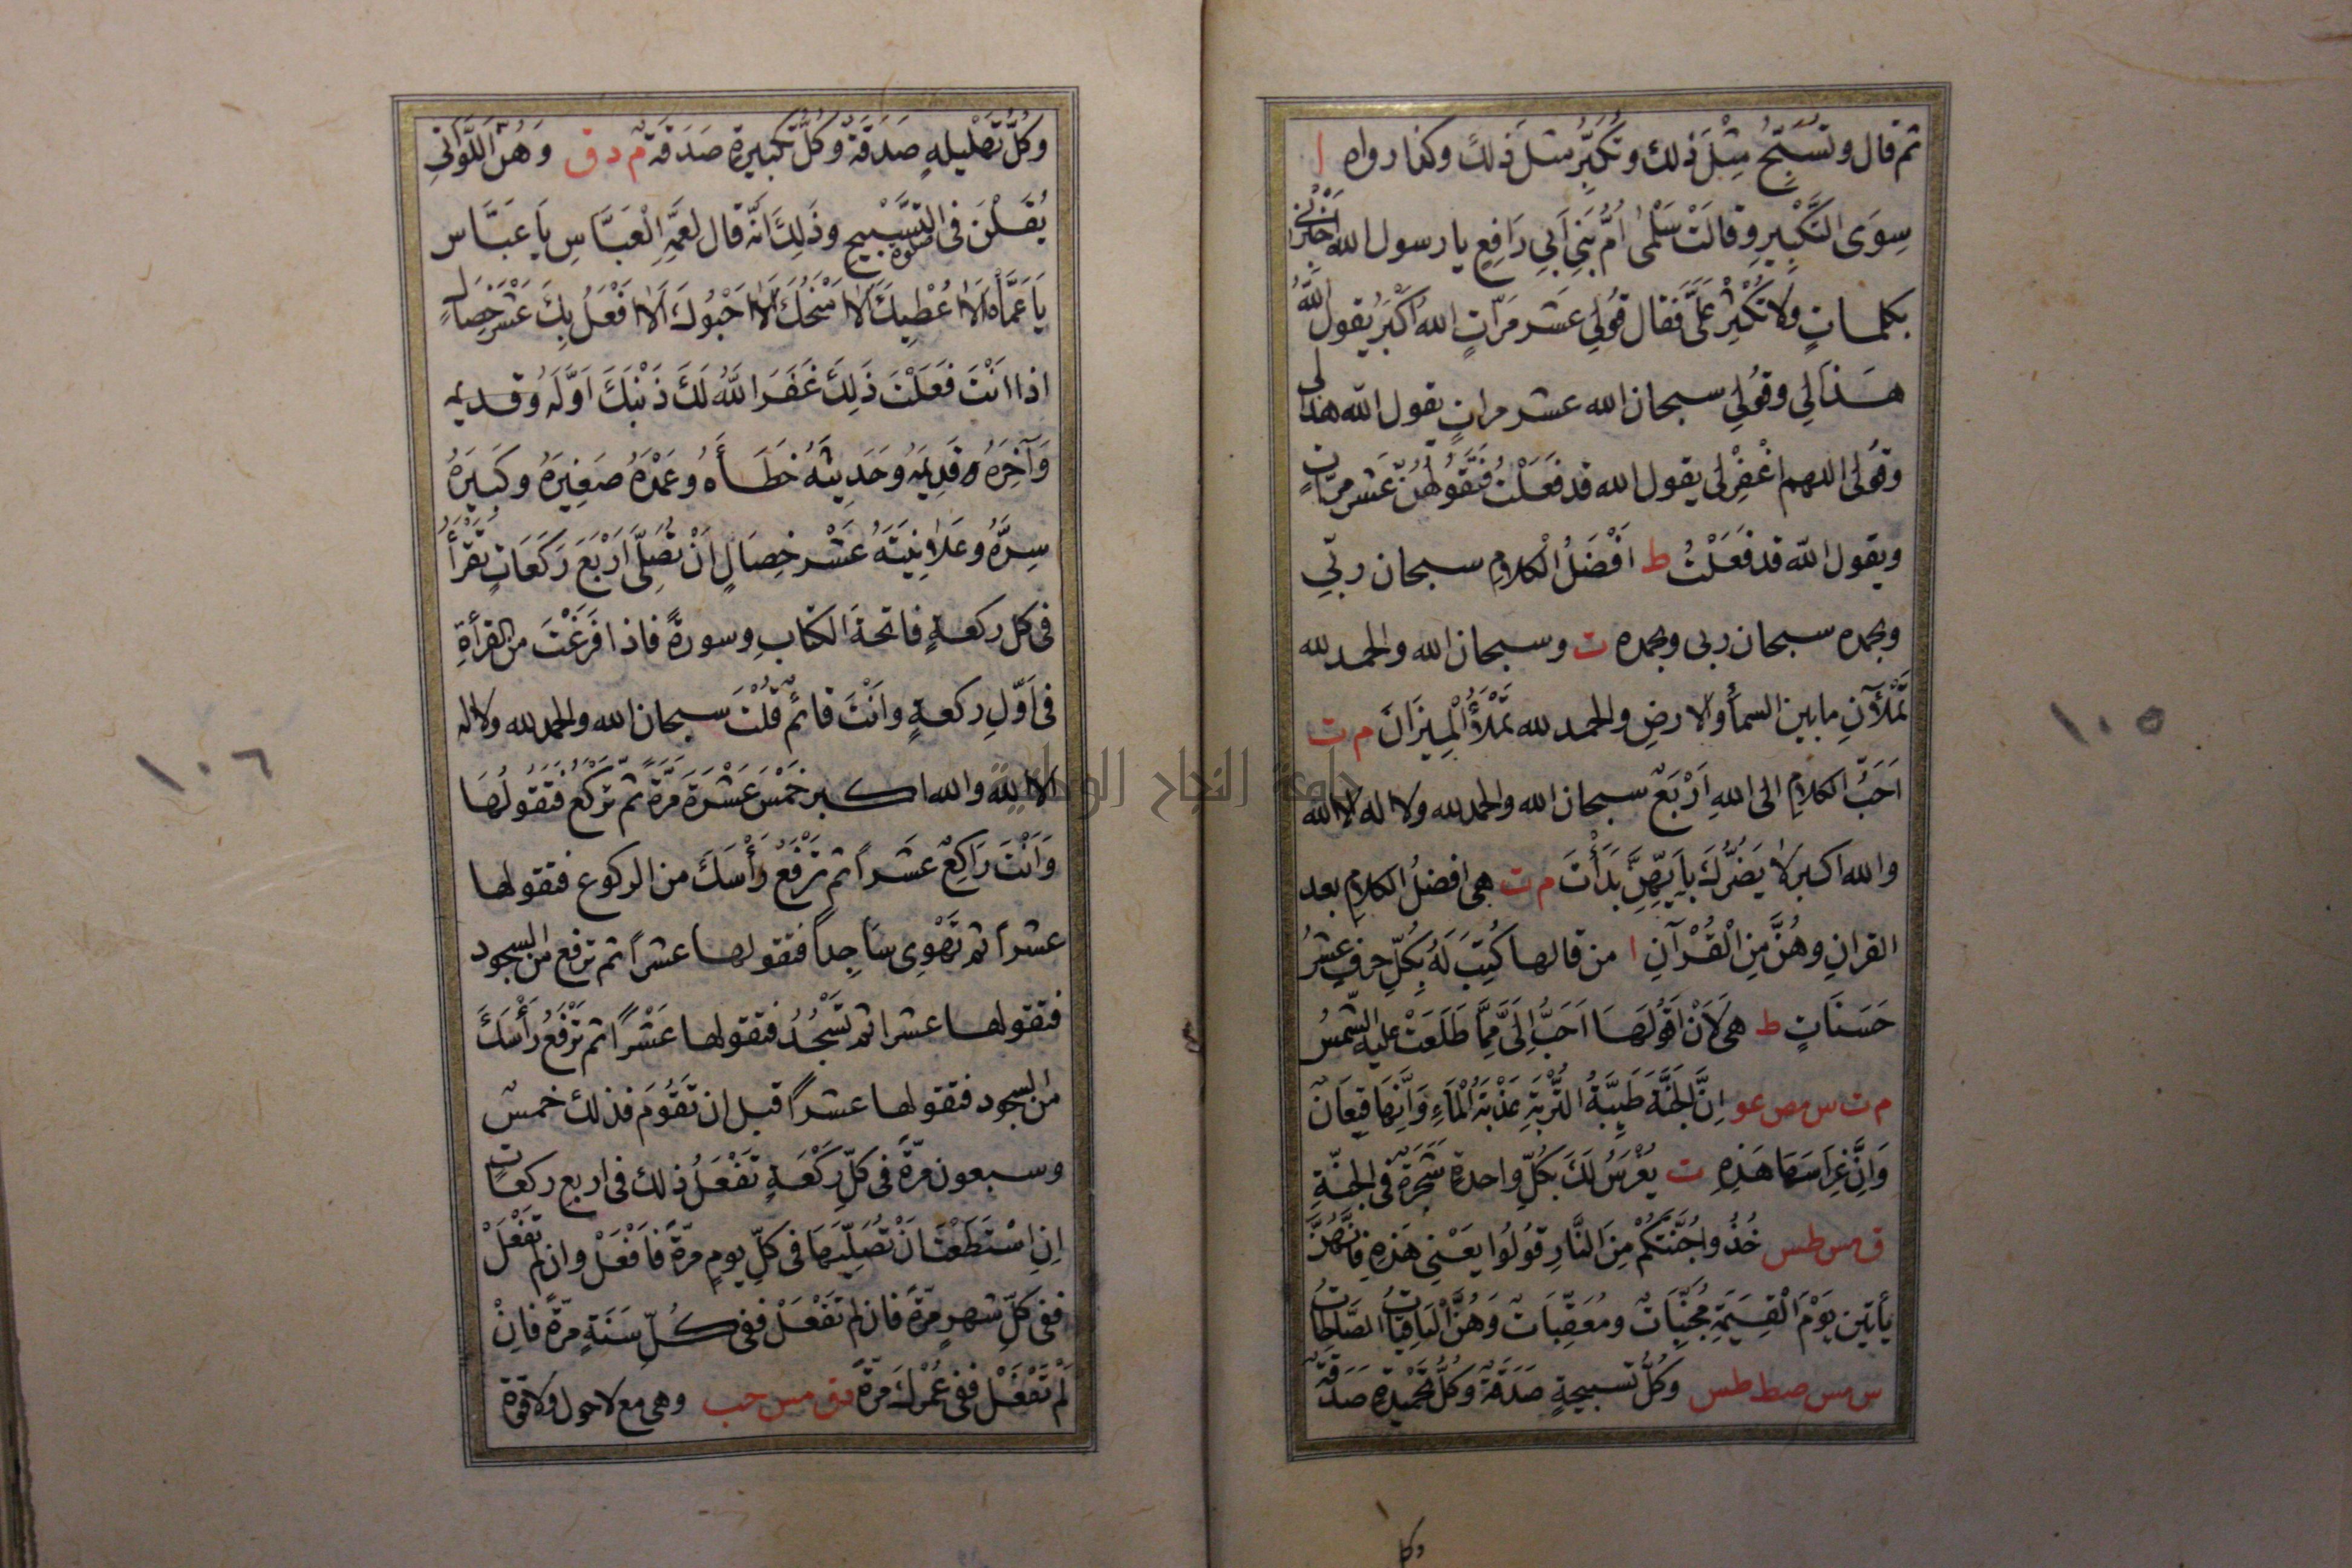 ثم قال وتُسَبِّحُ مِثْلَ ذلك وتُكَبِّرُ مثلَ ذلكَ وكذا رواه ا
سِوَى التَّكْبِيرِ وقالَتْ سَلْمٰى اُمُّ بَنِي اَبِي رَافِعٍ يا رسول الله اَخْبِرْنِي
بكلماتٍ ولا تُكْثِرْ عَلَيَّ فَقال قُولِي عَشر مَرَّاتٍ الله اَكْبَرُ يَقولُ اللّٰهُ
هَذا لِي وقُولِي سبحان الله عشر مراتٍ يقول الله هذا لي
وقُولي اللهم اغْفِرْ لِي يقول الله قد فَعَلْتُ فَتَقُولُهُنَّ عَشر مرّاتٍ
ويقول الله قد فَعَلْتُ ط اَفْضَلُ الْكلامِ سبحان ربّي
وبحمده سبحان ربي وبحمده ت وسبحان الله والحمد لله
تَمْلَآَنِ ما بين السمأ والارضِ والحمد لله تَمْلَأُ الْمِيزَانَ م ت
اَحَبُّ الكلامِ الى اللهِ اَرْبَعٌ سبحان الله والحمد لله ولا اله الا الله
والله اكبر لا يَضُرُّكَ بِاَيِّهِنَّ بَدَأْتَ م ت هي افضلُ الكلامِ بعد
القرانِ وهُنَّ مِنَ الْقُرْآنِ ا من قالها كُتِبَ لَهُ بِكُلِّ حرفٍ عشرُ
حَسَنَاتٍ ط هي لَاَنْ اَقُولَهَا اَحَبُّ اِلَيَّ مِمَّا طَلَعَتْ عليه الشَّمسُ
م ت س مص عو اِنَّ الجَنَّةَ طَيِّبَةُ التُّرْبَةِ عَذْبَةُ الْمَاءِ وَاَنَّهَا قِيعَانٌ
وَاِنَّ غِرَاسَهَا هَذِهِ ت يُغْرَسُ لَكَ بكُلِّ واحدةٍ شَجَرَةٌ فى الجنّةِ
ق مس طس خُذُوا جُنَّتَكُمْ مِنَ النَّارِ قُولُوا يَعْنِي هَذِهِ فَاِنَّهُنَّ
يأتينَ يَوْمَ الْقِيمَةِ مُجَنِّبَاتٌ ومُعَقِّبَاتٌ وَهُنَّ الْبَاقِيَاتُ الصَّالِحَاتُ
س مس صط طس وَكُلُّ تسبيحةٍ صَدَقَةٌ وَكُلُّ تَحْمِيْدَةٍ صَدَقَةٌ
وكا
١٠٥
وَكُلُّ تَهْلِيلَةٍ صَدَقَةٌ وَكُلُّ تَكْبِيرَةٍ صَدَقَةٌ م د ق وَهُنَّ اللَّوَاتِي
يُقَلْنَ فى صلوة التَّسْبِيحِ وذَلِكَ اَنَّه قال لعَمِّهِ الْعَبَّاسِ يَا عَبَّاس
يَا عَمَّاه اَلَا اُعْطِيكَ اَلَا اَمْنَحُكَ اَلَا اَحْبُوكَ اَلَا اَفْعَلُ بِكَ عَشْرَ خِصَالٍ
اذا اَنْتَ فَعَلْتَ ذَلِكَ غَفَرَ اللَّهُ لَكَ ذَنْبَكَ اَوَّلَهُ وقديمه
وَآخِرَهُ وقَدِيمَهُ وَحَدِيثَهُ خَطَأَهُ وعَمْدَهُ صَغِيرَهُ وكَبِيرَهُ
سِرَّهُ وعَلَانِيَتَهُ عَشْرَ خِصَالٍ اَنْ تُصَلِّيَ اَرْبَعَ رَكَعَاتٍ تَقْرَأُ
فى كل ركعةٍ فاتحةَ الكتابِ وسورةً فاذا فَرَغْتَ من القرأةِ
فى اَوَّلِ ركعةٍ وَاَنْتَ قائمٌ قُلْتَ سبحان الله والحمد لله ولا اله
الا الله والله اكبر خَمْسَ عَشْرَةَ مَرَّةً ثم تَرْكَعُ فَتَقُولُهَا
وَاَنْتَ رَاكِعٌ عَشراً ثم تَرْفَعُ رَأْسَكَ من الركوع فتقولها
عشراً ثم تَهْوِى سَاجِداً فتقولها عشراً ثم ترفع من السجود
فتقولها عشرا ثم تَسْجُدُ فتقولها عَشْراً ثم تَرْفَعُ رَأْسَكَ
من السجود فتقولها عشراً قبل ان تَقُومَ فذلك خمسٌ
وسبعون مرّةً فى كلّ رَكْعَةٍ تَفْعَلُ ذلك فى اربع ركعاتٍ
اِنِ اسْتَطَعْتَ اَنْ تُصَلِّيَهَا فى كلِّ يومٍ مرّةً فَافْعَلْ وان لم تَفْعَلْ
ففى كلّ شهرٍ مرّةً فان لم تَفْعَلْ ففى كُلِّ سَنَةٍ مرّةً فاِنْ
لَمْ تَفْعَلْ ففى عُمُرِكَ مَرَّةً د ق مس حب وهى مع لا حول ولا قوّة
١٠٦
جامعة النجاح الوطنية